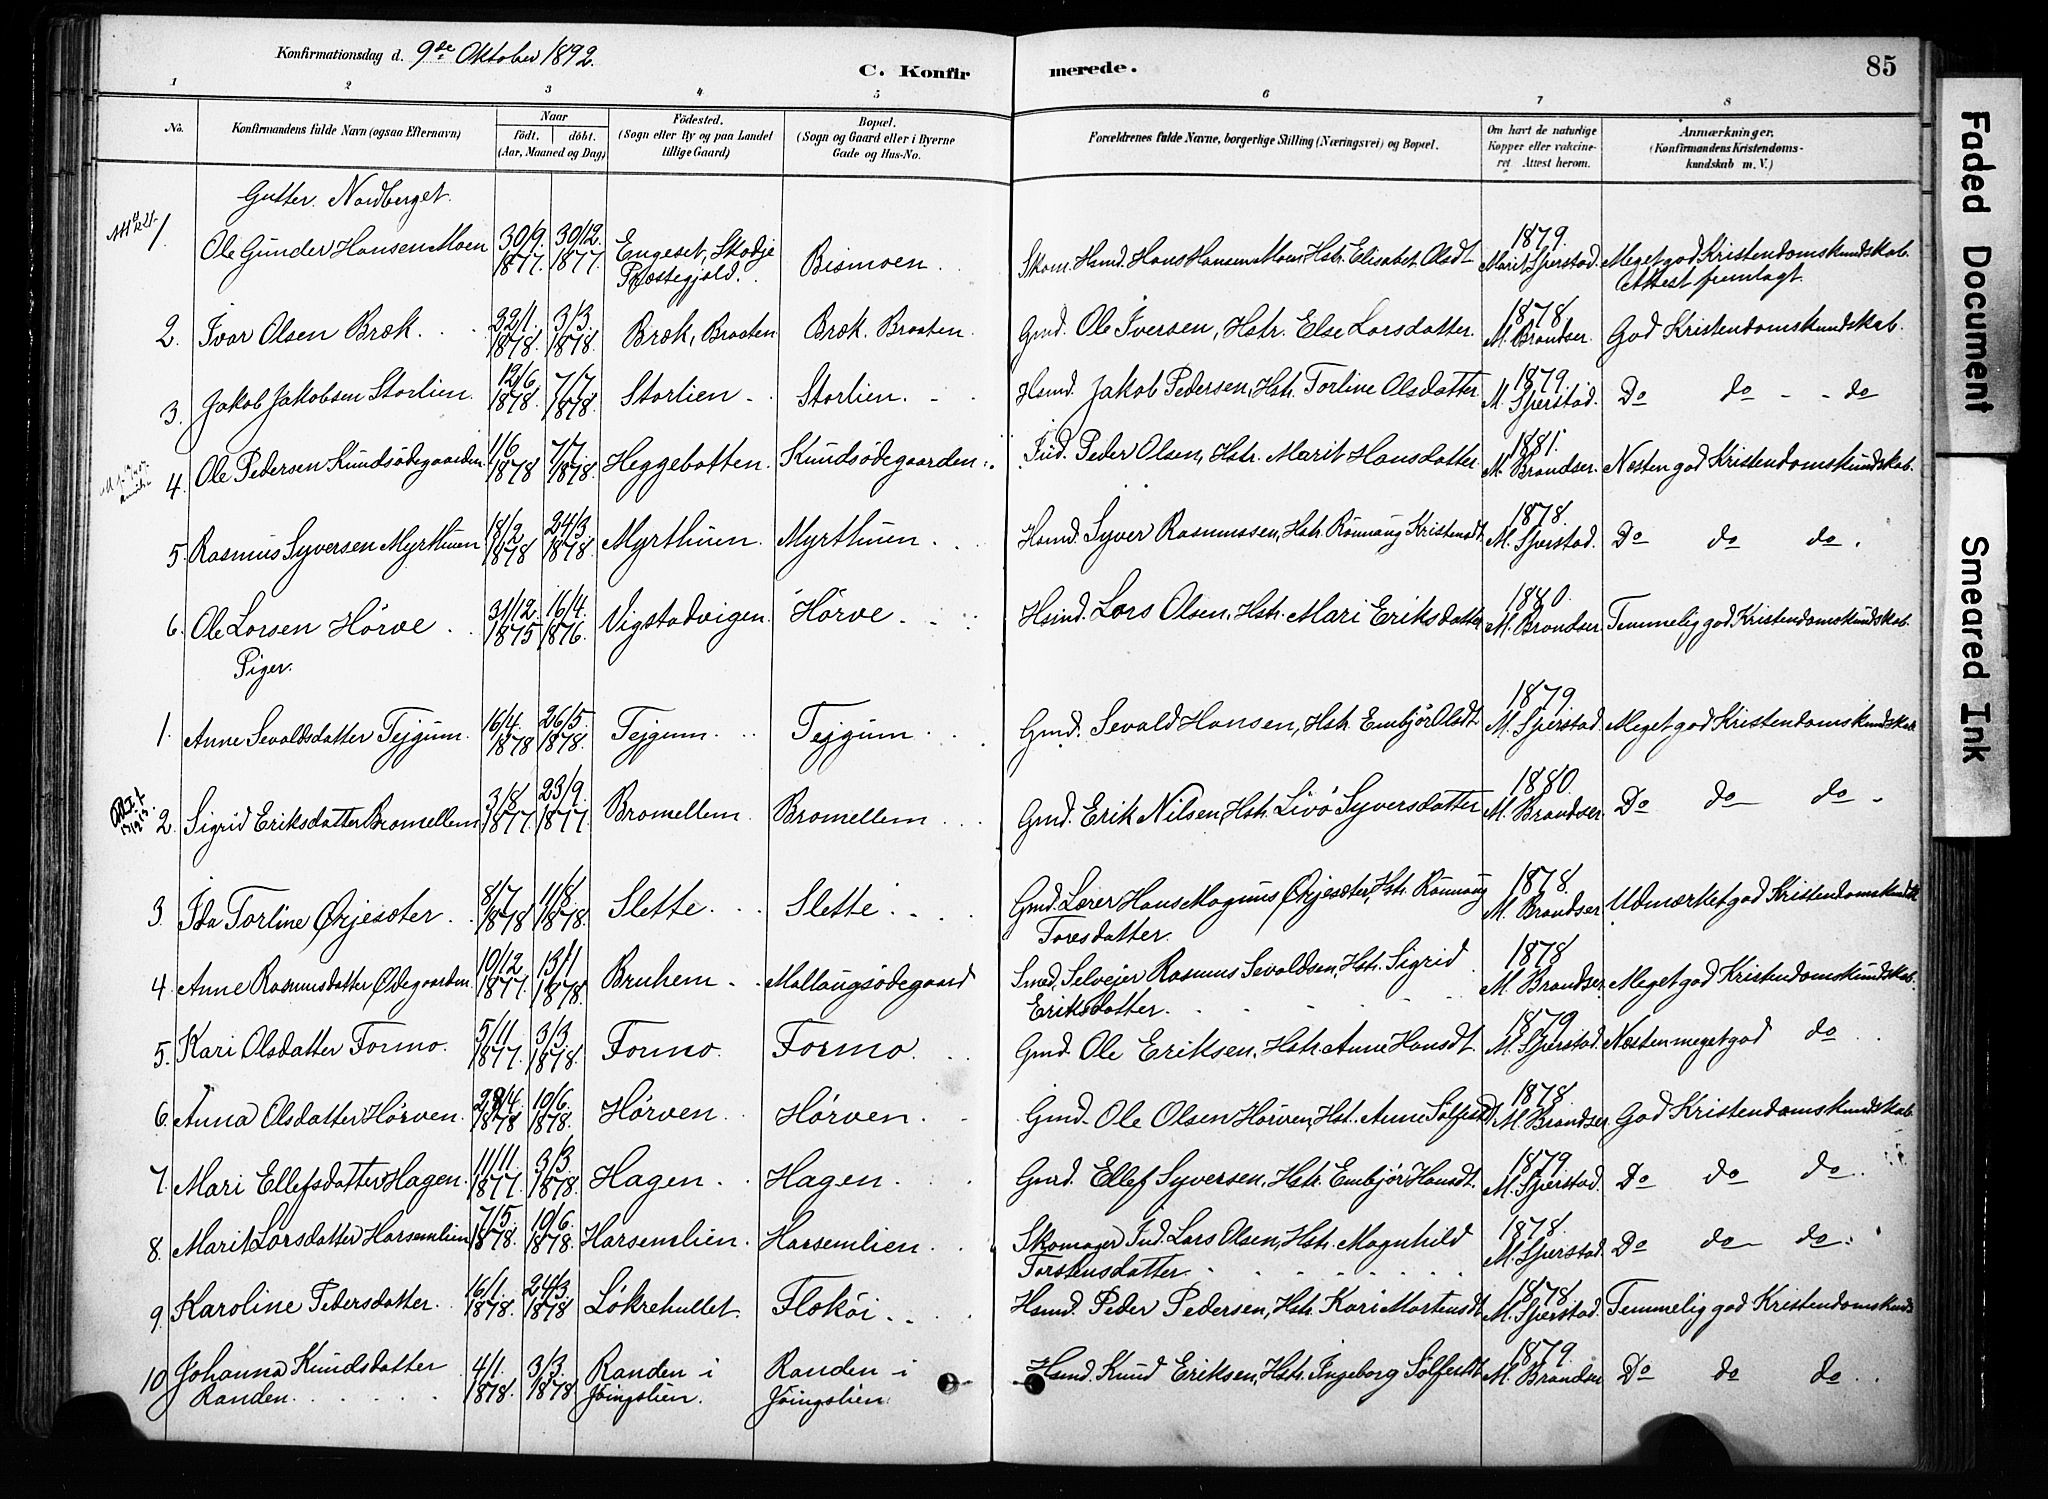 Konfirmationsdag d. 9de Oktober 1892.
C. Konfirmerede.
85
1 2 3 4 5 6 7 8
No.
Konfirmandens fulde Navn (ogsaa Efternavn)
Naar
födt. döbt.
(Aar, Maaned og Dag)
Födested.
(Sogn eller By og paa Landet
tillige Gaard)
Bopæl.
(Sogn og Gaard eller i Byerne
Gade og Hus-No.
Forældrenes fulde Navne, borgerlige Stilling (Næringsvei) og Bopæl.
Om havt de naturlige
Kopper eller vakcine-
ret Attest herom.
Anmærkninger.
(Konfirmandens Kristendoms-
kundskab m. V.)
Gutter. Nordberget.
1 Ole Gunder Hansen Moen 30/9. 1877. 30/12. 1877. Engeset, Skodje Præstegjeld. Bismoen Skom. Hsmd. Hans Hansen Moen, Hstr. Elisabet Olsdt 1879. Marit Sperstad. Meget god Kristendomskundskab. Attest fremlagt.
2. Ivar Olsen Bræk. 22/1. 1878. 3/3. 1878. Bræk, Braaten Bræk. Braaten. Gmd. Ole Iversen, Hstr. Else Larsdatter. 1878. M. Brandser. God Kristendomskundskab.
3. Jakob Jakobsen Storlien. 12/6. 1878. 7/7. 1878. Storlien Storlien. Hsmd. Jakob Pedersen, Hstr. Torline Olsdatter 1879. M. Sperstad. Do do do
4. Ole Pedersen Knudsödegaarden. 1/6 1878 7/7. 1878. Heggebotten. Knudsödegaarden. Ind. Peder Olsen, Hstr. Marit Hansdatter 1881. M. Brandser. Næsten god Kristendomskundskab.
5. Rasmus Syversen Myrthuen 18/2 1878 24/3 1878 Myrthuen. Myrthuen Hsmd. Syver Rasmussen, Hstr. Rönnaug Kristensdt. 1878. M. Sperstad. Do do do.
6. Ole Larsen Hörve 31/12 1875 16/4. 1876. Vigstadvigen. Hörve Hsmd. Lars Olsen, Hstr. Mari Eriksdatter 1880. M. Brandser. Temmelig god Kristendomskundskab.
Piger.
1. Anne Sevaldsdatter Tejgum. 16/4. 1878 26/5. 1878. Tejgum. Tejgum Gmd. Sevald Hansen, Hstr. Embjör Olsdt. 1879. M. Sperstad. Meget god Kristendomskundskab
2. Sigrid Eriksdatter Bromellem 3/8. 1877. 23/9. 1877. Bromellem. Bromellem Gmd. Erik Nilsen, Hstr. Livö Syversdatter 1880. M. Brandser. Do do do
3. Ida Torline Ørjesæter. 8/7. 1878 11/8. 1878. Slette. Slette. Gmd. Lærer Hans Magnus Ørjesæter, Hstr. Rönnaug Toresdatter. 1878. M. Brandser Udmærket god Kristendomskundsk
4. Anne Rasmusdatter Ødegaarden. 10/12. 1877. 13/1 1878. Bruhem Mallaugsödegaard Smed, Selvejer Rasmus Sevaldsen, Hstr. Sigrid Eriksdatter. 1878 M. Brandser. Meget god Kristendomskundskab.
5. Kari Olsdatter Formo. 5/11 1877. 3/3. 1878. Formo. Formo. Gmd. Ole Eriksen, Hstr. Anne Hansdt. 1879 M. Sperstad. Næsten meget god do
6. Anna Olsdatter Hörven. 28/4. 1878 10/6. 1878. Hörven. Hörven. Gmd. Ole Olsen Hörven, Hstr. Anne Solfestdt 1878. M. Brandser. God Kristendomskundskab
7. Mari Ellefsdatter Hagen. 11/11. 1877. 3/3. 1878. Hagen. Hagen. Gmd. Ellef Syversen, Hstr. Embjör Hansdt. 1879. M. Sperstad. Do do do
8. Marit Larsdatter Harsemlien 7/5. 1878. 10/6. 1878. Harsemlien. Harsemlien. Skomager Ind. Lars Olsen, Hstr. Magnhild Torstensdatter. 1878. M. Sperstad. Do do do.
9. Karoline Pedersdatter. 16/1. 1878. 24/3. 1878 Lökrehullet. Floköi Hsmd. Peder Pedersen, Hstr. Kari Mortensdt. 1878. M. Sperstad. Temmelig god Kristendomskunds
10 Johanna Knudsdatter Randen. 4/1. 1878. 3/3. 1878 Randen i Jöingslien. Randen i Jöingslien. Hsmd. Knud Eriksen, Hstr. Ingeborg Solfestdt 1879. M. Brandser Do do do
Faded Document
Smeared Ink